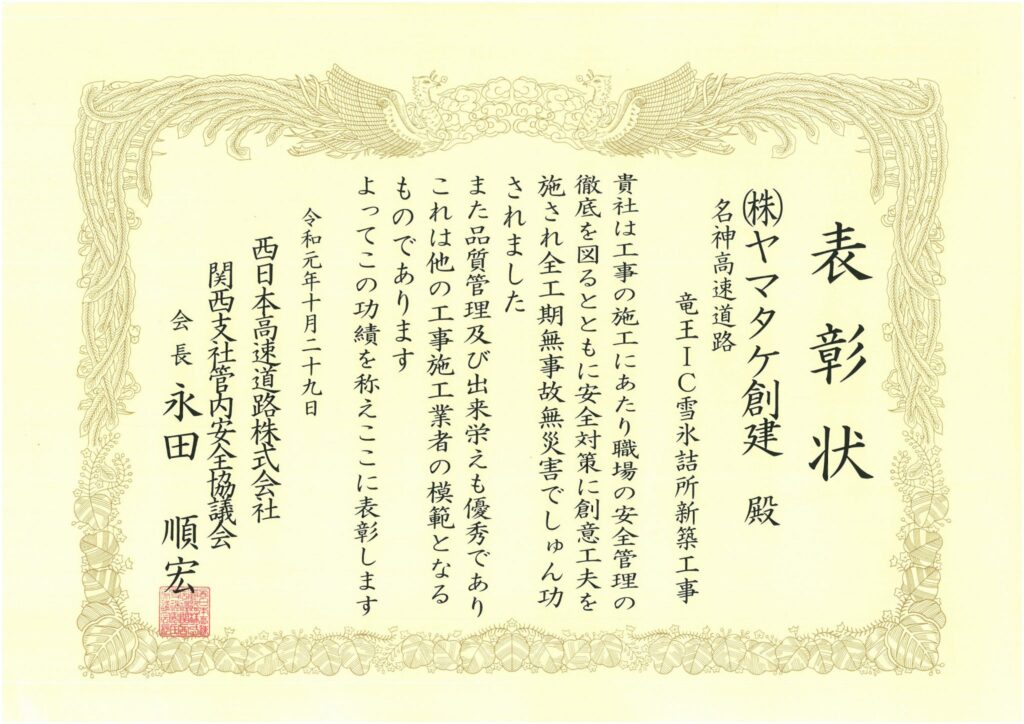 表彰状
㈱ヤマタケ創建 殿
名神高速道路
竜王IC雪氷詰所新築工事
貴社は工事の施工にあたり職場の安全管理の
徹底を図るとともに安全対策に創意工夫を
施され全工期無事故無災害でしゅん功
されました
また品質管理及び出来栄えも優秀であり
これは他の工事施工業者の模範となる
ものであります
よってこの功績を称えここに表彰します
令和元年十月二十九日
西日本高速道路株式会社
関西支社管内安全協議会
会長 永田 順宏